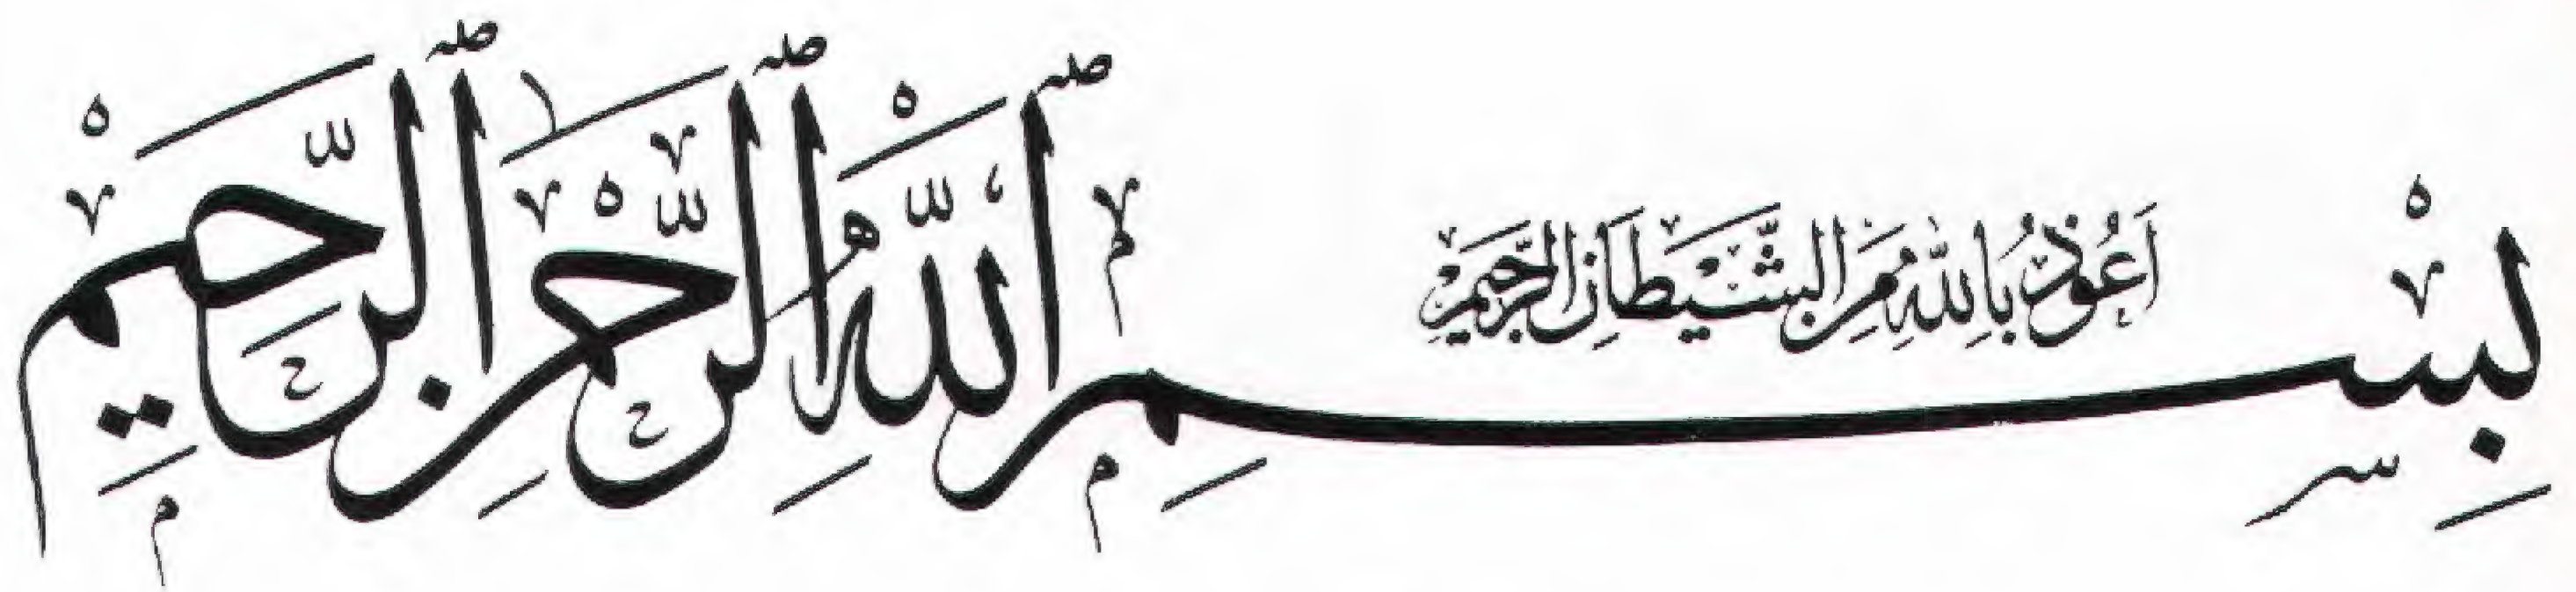 أَعُوذُ بِاللّٰهِ مِنَ الشَّيْطَانِ الرَّجِيمِ
بِسْمِ اللّٰهِ الرَّحْمٰنِ الرَّحِيمِ